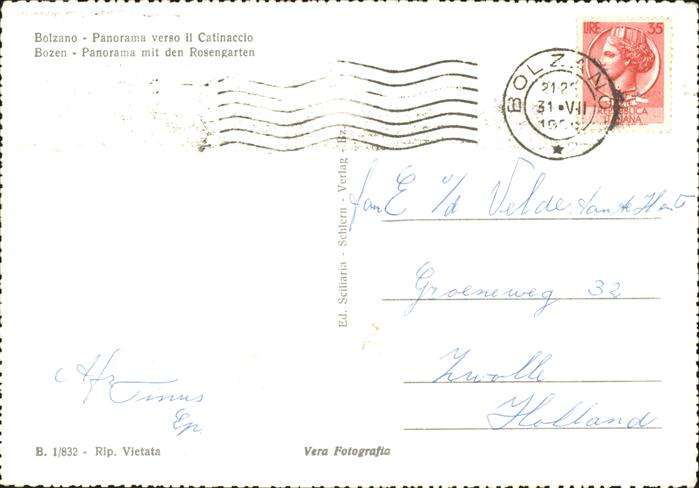 Bolzano - Panorama verso il Catinaccio
Bozen - Panorama mit den Rosengarten
LIRE 35
REPUBBLICA
ITALIANA
BOLZANO
31 • VII
Ed. Sciliaria - Schlern - Verlag - Bz.
Fam E v/d Velde
Groeneweg 32
Zwolle
Holland
B. 1/832 - Rip. Vietata
Vera Fotografia